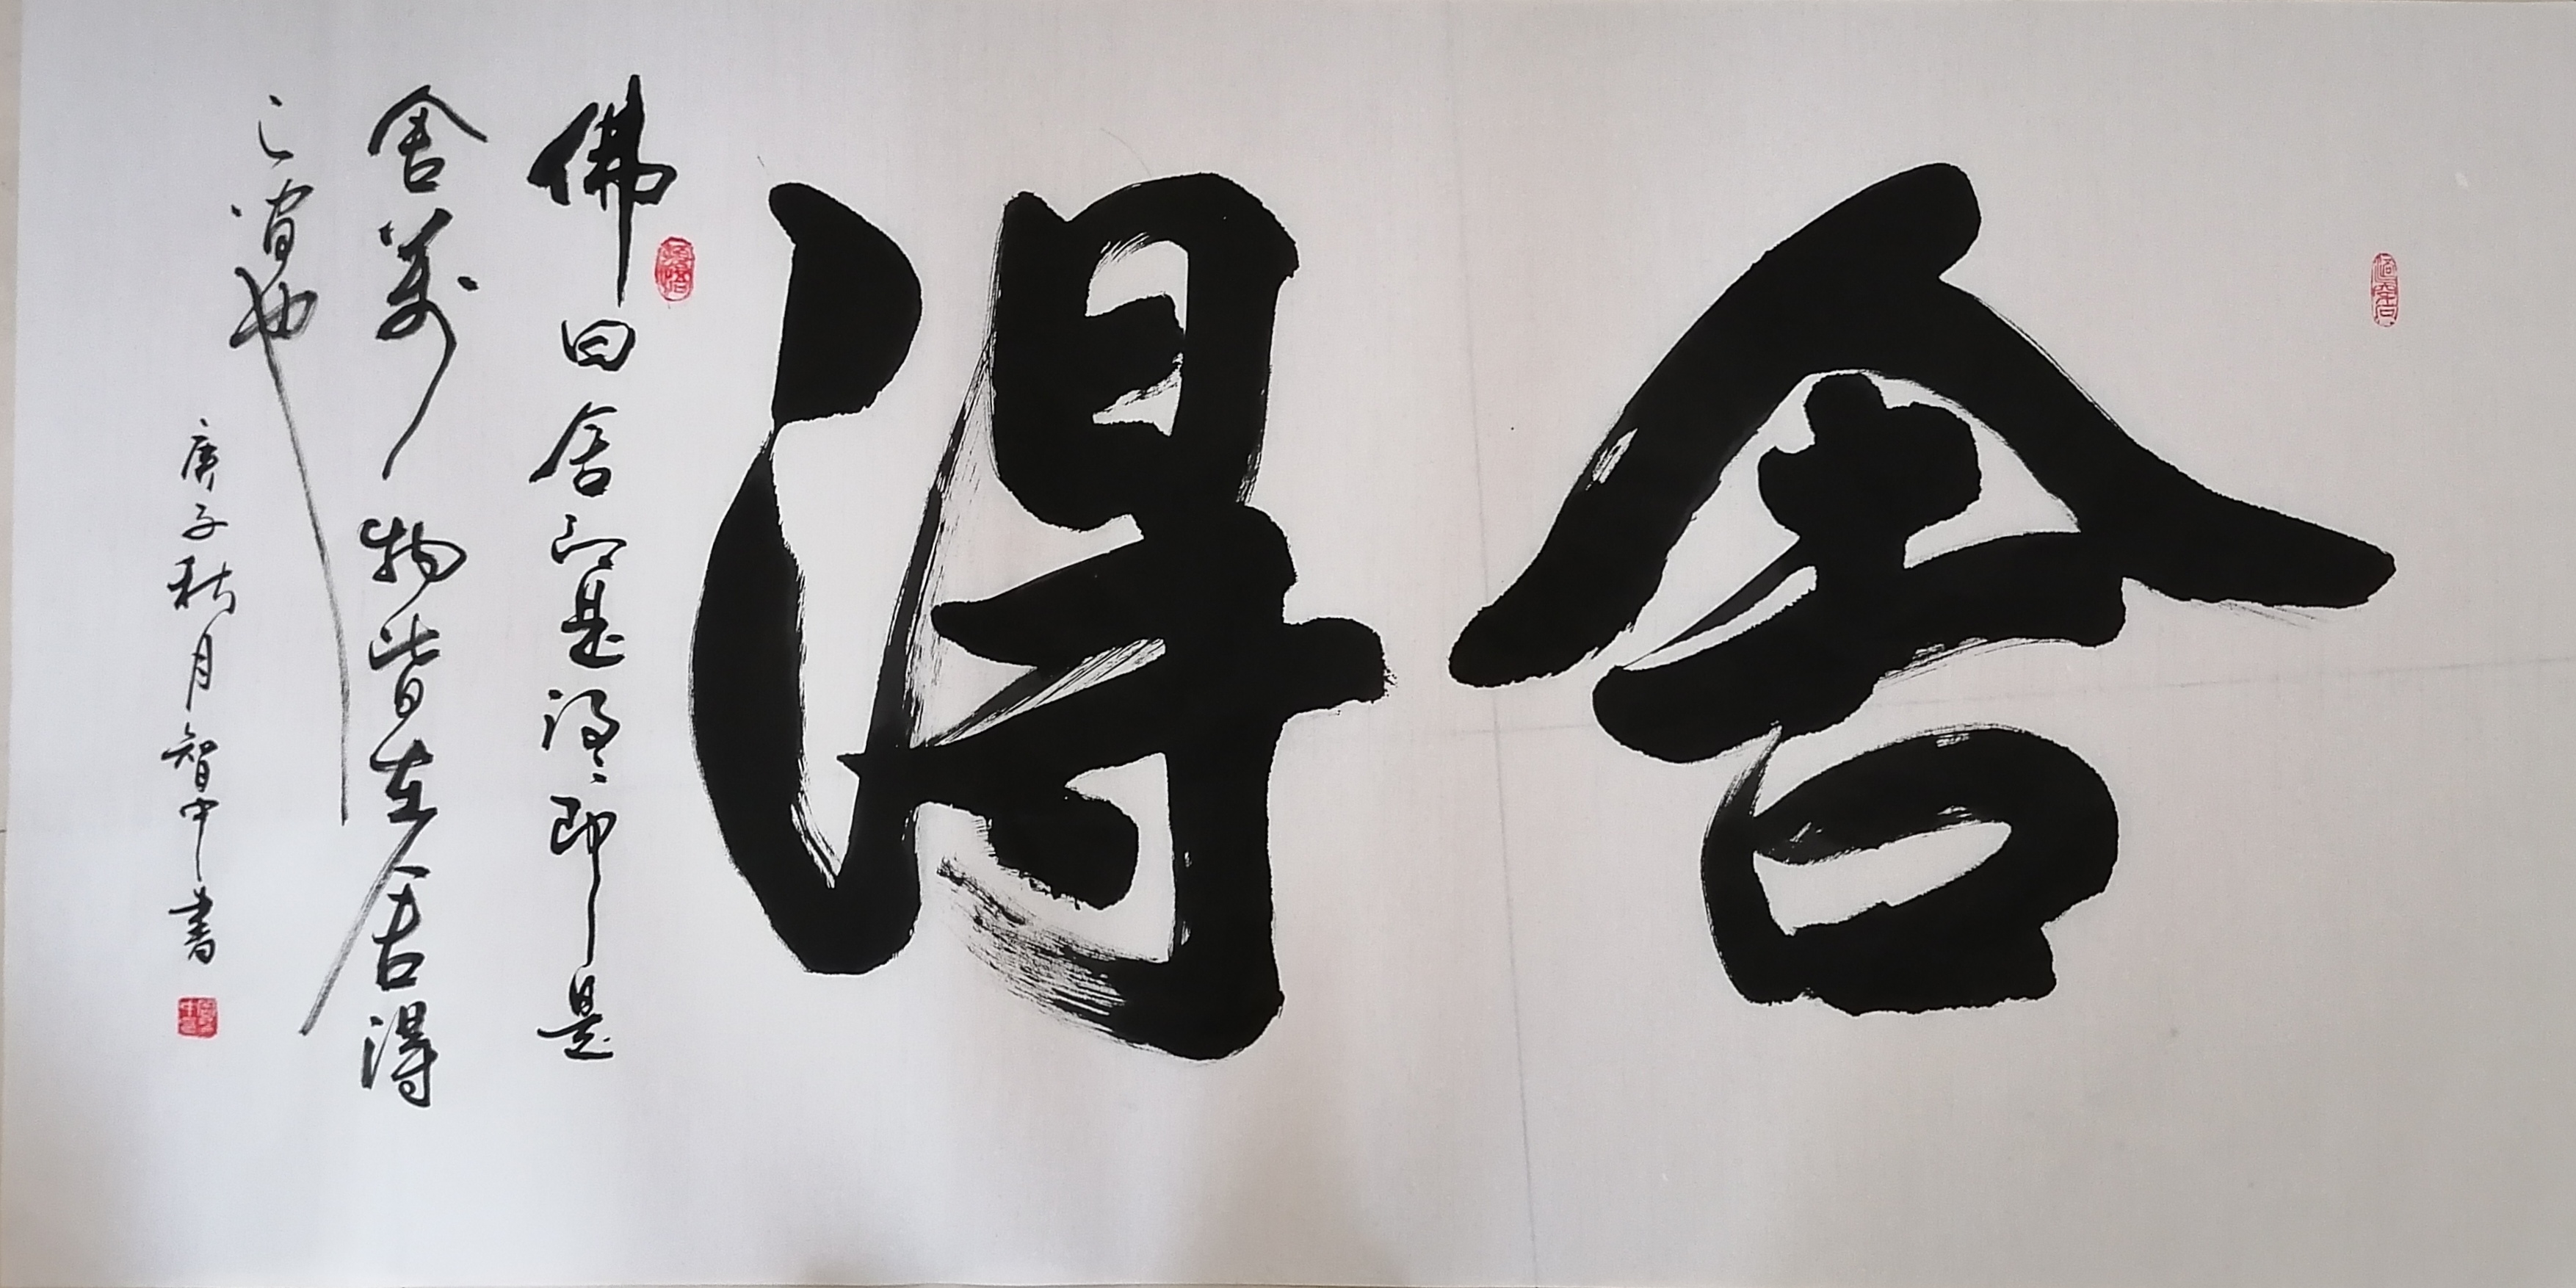 舍得
佛曰舍即是得得即是
舍萬物皆在舍得
之間也
庚子秋月智中書